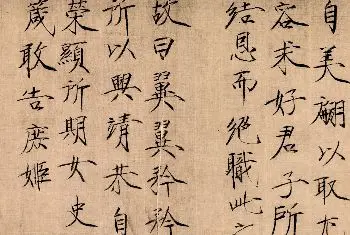 自美翩以取
容求好君子所
結恩而絕職此
故曰翼翼矜矜
所以興靖恭自
榮顯所期女史
箴敢告庶姬